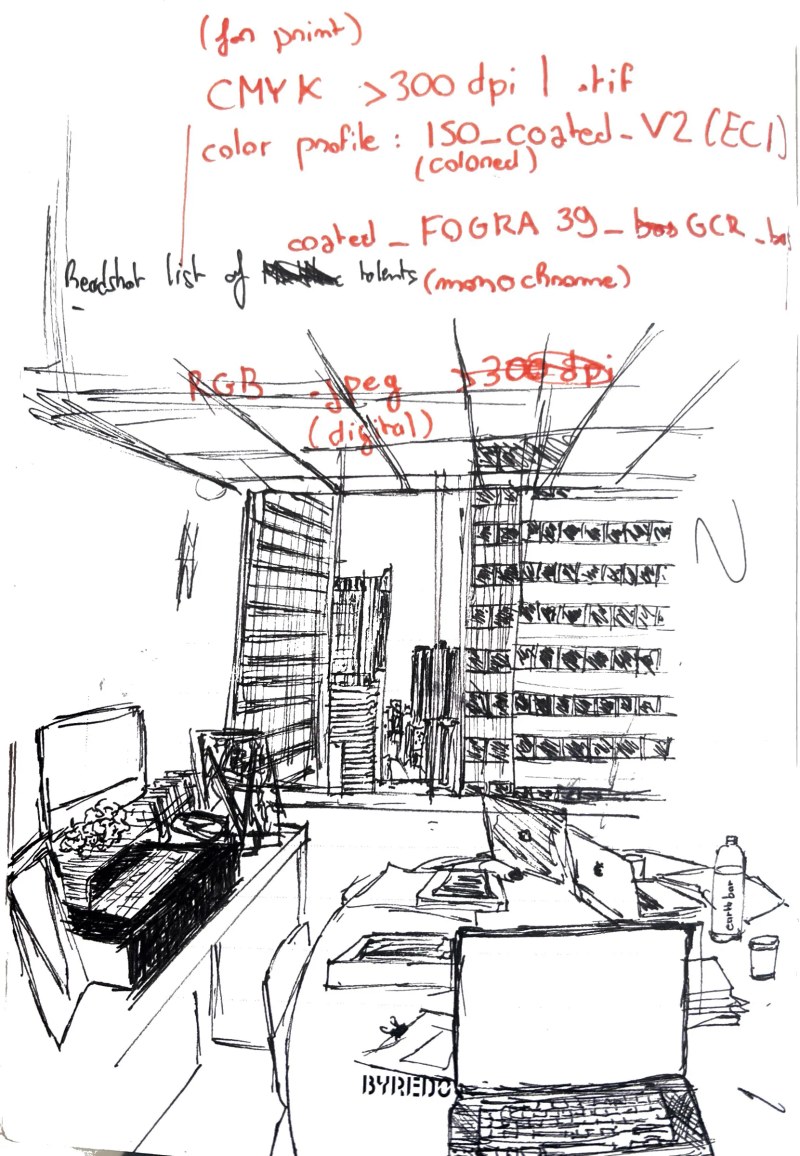 (for print)
CMYK >300 dpi | .tif
color profile : ISO_coated_V2 (ECI)
(colored)
coated_FOGRA 39_ GCR_bas
Headshot list of talents (monochrome)
RGB .jpeg >300 dpi
(digital)
earth bar
BYREDO